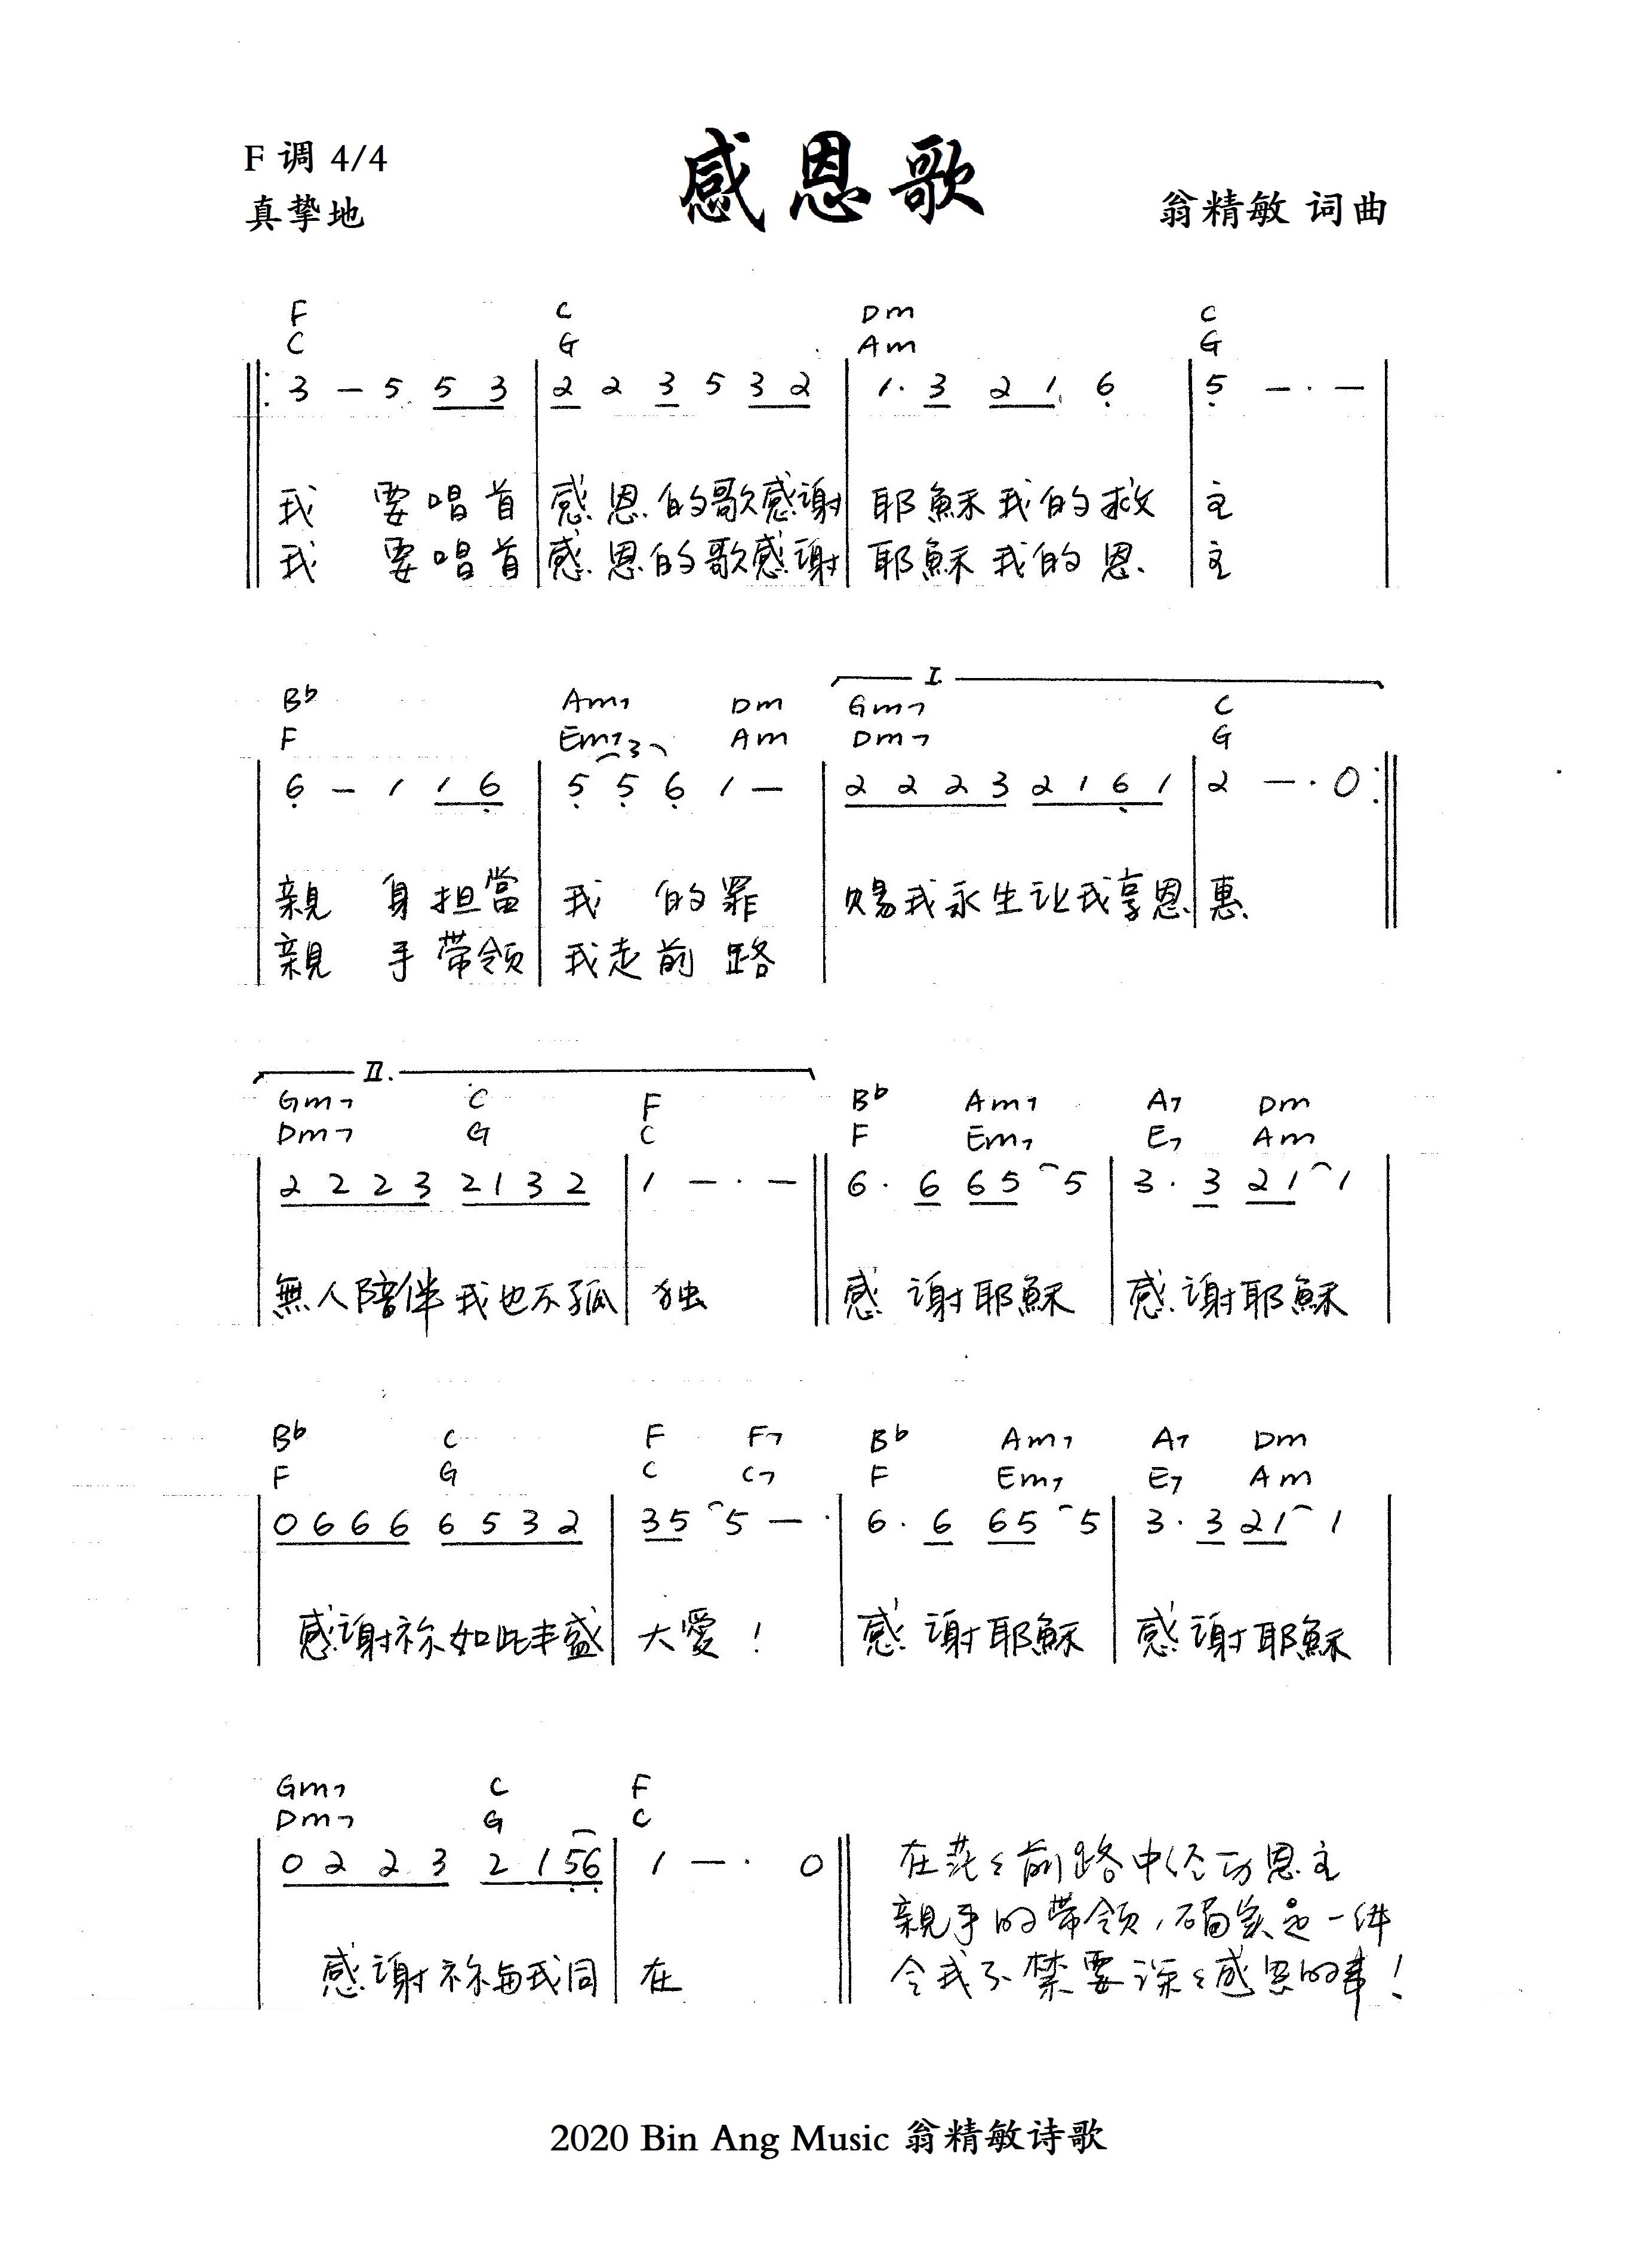 F 调 4/4
感恩歌
真挚地
翁精敏 词曲
F C Dm C
C G Am G
3 — 5 5 3 | 2 2 3 5 3 2 | 1· 3 2 1 6 | 5 — · —
我 要唱首 感恩的歌感谢 耶穌我的救 主
我 要唱首 感恩的歌感谢 耶穌我的恩 主
I.
Bb Am7 Dm Gm7 C
F Em7 Am Dm7 G
3
6 — 1 1 6 | 5 5 6 1 — | 2 2 2 3 2 1 6 1 | 2 — · 0
親 身担當 我 的罪 赐我永生让我享恩 惠
親 手带领 我走前路
II.
Gm7 C F Bb Am7 A7 Dm
Dm7 G C F Em7 E7 Am
2 2 2 3 2 1 3 2 | 1 — · — || 6 · 6 6 5 5 | 3 · 3 2 1 1
無人陪伴我也不孤 独 感谢耶穌 感谢耶穌
Bb C F F7 Bb Am7 A7 Dm
F G C C7 F Em7 E7 Am
0 6 6 6 6 5 3 2 | 3 5 5 — · | 6 · 6 6 5 5 | 3 · 3 2 1 1
感谢祢如此丰盛 大愛！ 感谢耶穌 感谢耶穌
Gm7 C F
Dm7 G C
0 2 2 3 2 1 5 6 | 1 — · 0
感谢祢与我同 在
在茫々前路中经历恩主
親手的带领，确实是一件
令我不禁要深々感恩的事！
2020 Bin Ang Music 翁精敏诗歌